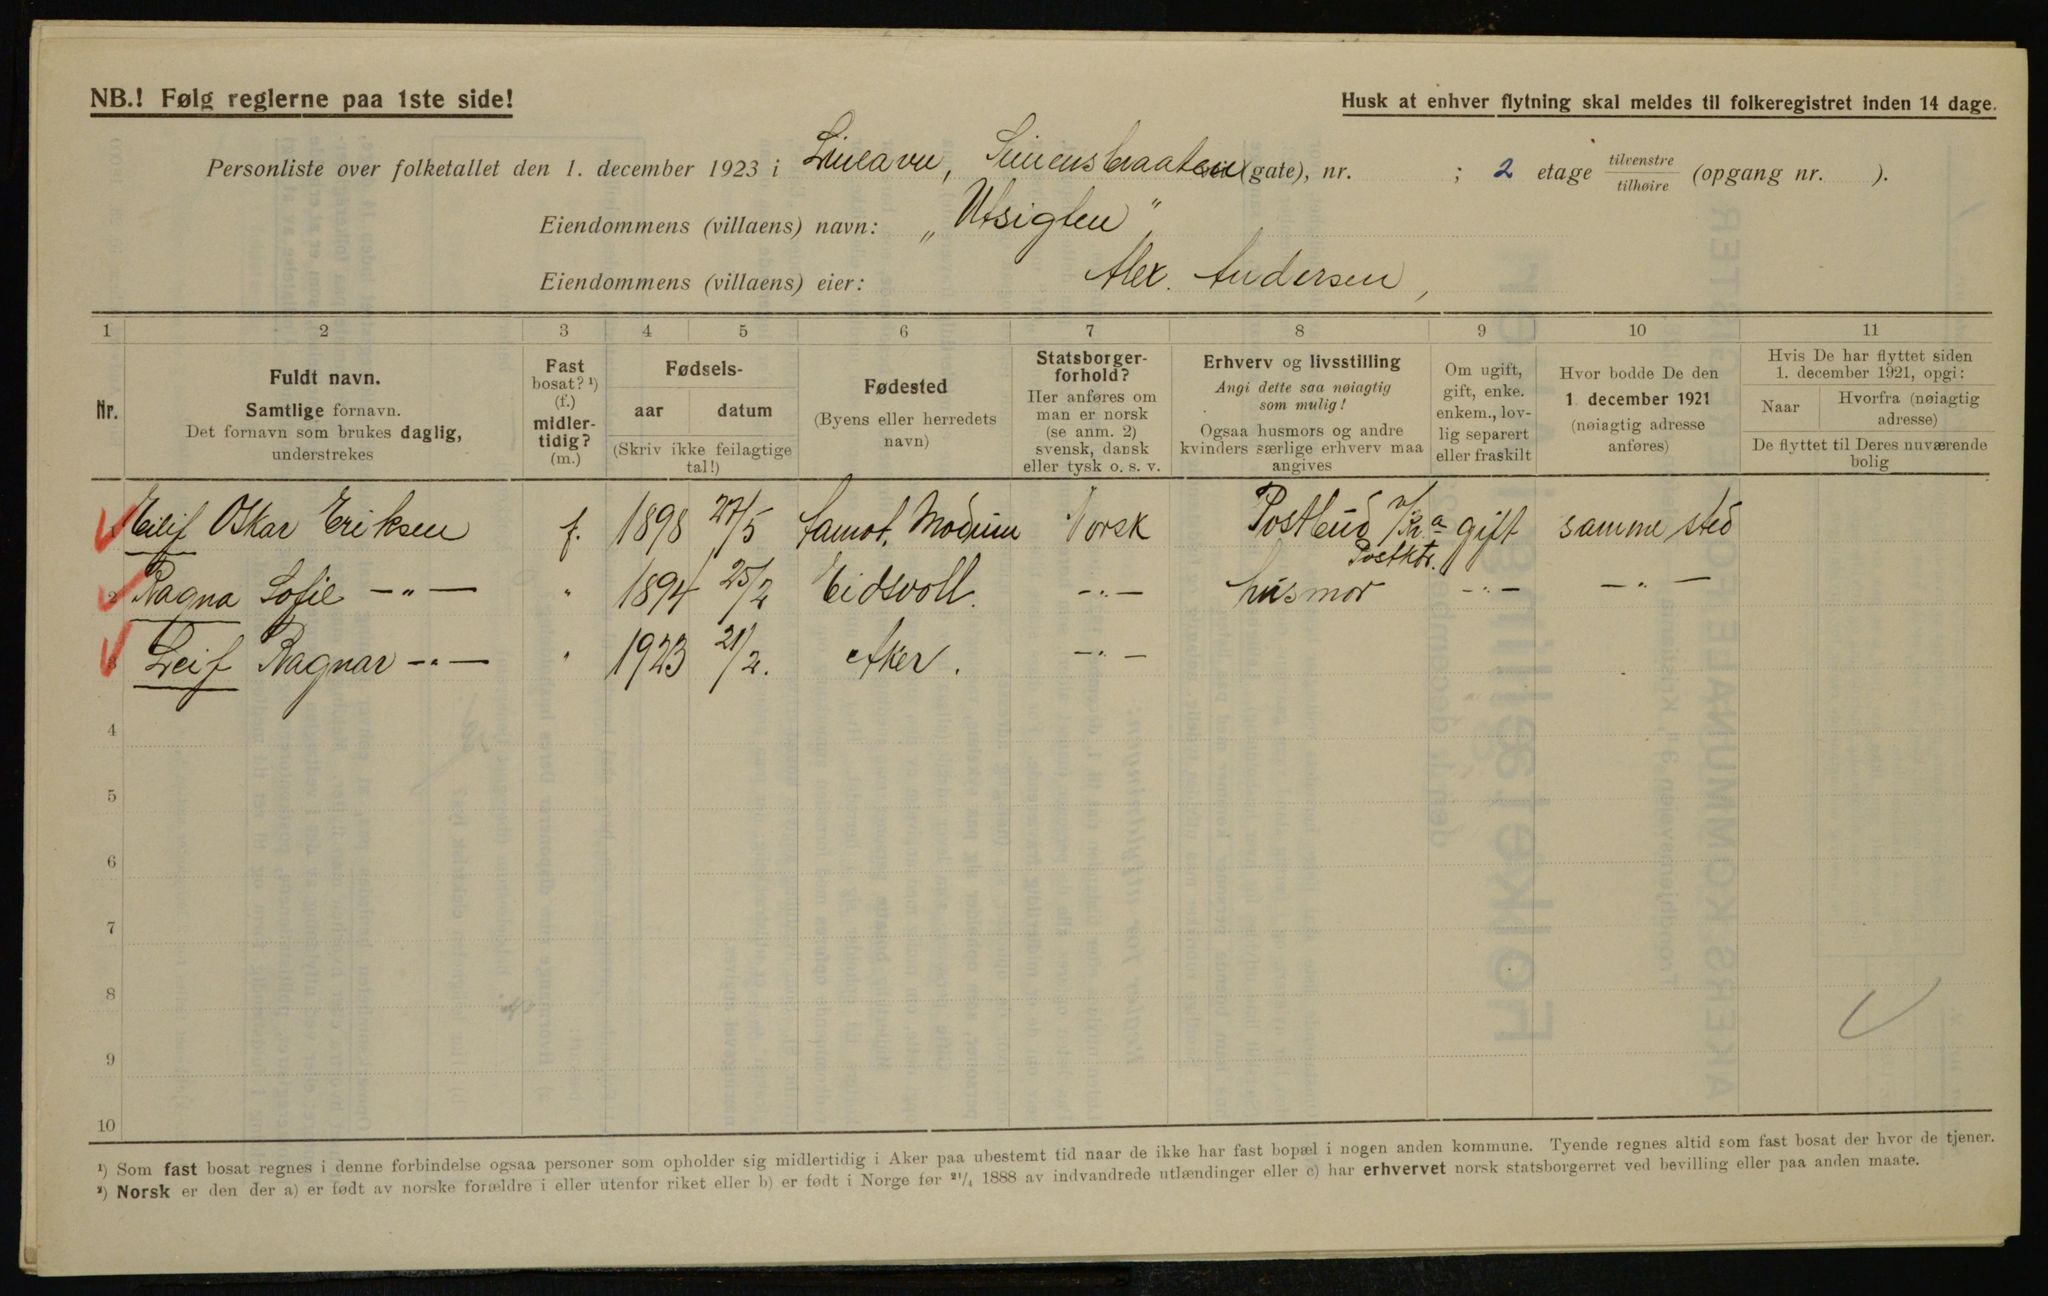 NB.! Følg reglerne paa 1ste side!
Husk at enhver flytning skal meldes til folkeregistret inden 14 dage.
Personliste over folketallet den 1. december 1923 i Simensbraaten (gate), nr. ; 2 etage tilvenstre/tilhøire (opgang nr. ).
Eiendommens (villaens) navn: „Utsigten"
Eiendommens (villaens) eier: Alex. Andersen,
1 2 3 4 5 6 7 8 9 10 11
Nr.
Fuldt navn.
Samtlige fornavn.
Det fornavn som brukes daglig,
understrekes
Fast
bosat? ¹)
(f.)
midler-
tidig?
(m.)
Fødsels-
aar datum
(Skriv ikke feilagtige
tal!)
Fødested
(Byens eller herredets
navn)
Statsborger-
forhold?
Her anføres om
man er norsk
(se anm. 2)
svensk, dansk
eller tysk o. s. v.
Erhverv og livsstilling
Angi dette saa nøiagtig
som mulig!
Ogsaa husmors og andre
kvinders særlige erhverv maa
angives
Om ugift,
gift, enke.
enkem., lov-
lig separert
eller fraskilt
Hvor bodde De den
1. december 1921
(nøiagtig adresse
anføres)
Hvis De har flyttet siden
1. december 1921, opgi:
Naar
Hvorfra (nøiagtig
adresse)
De flyttet til Deres nuværende
bolig
Eilif Oskar Eriksen f. 1898 27/5 Modum Norsk Postbud Kr.a Postktr. gift samme sted
2 Ragna Sofie —"— " 1894 25/2 Eidsvoll. —"— husmor —"— —"—
3 Leif Ragnar —"— " 1923 21/2. Aker. —"—
4
5
6
7
8
9
10
¹) Som fast bosat regnes i denne forbindelse ogsaa personer som opholder sig midlertidig i Aker paa ubestemt tid naar de ikke har fast bopæl i nogen anden kommune. Tyende regnes altid som fast bosat der hvor de tjener.
²) Norsk er den der a) er født av norske forældre i eller utenfor riket eller b) er født i Norge før ²¹/₄ 1888 av indvandrede utlændinger eller c) har erhvervet norsk statsborgerret ved bevilling eller paa anden maate.